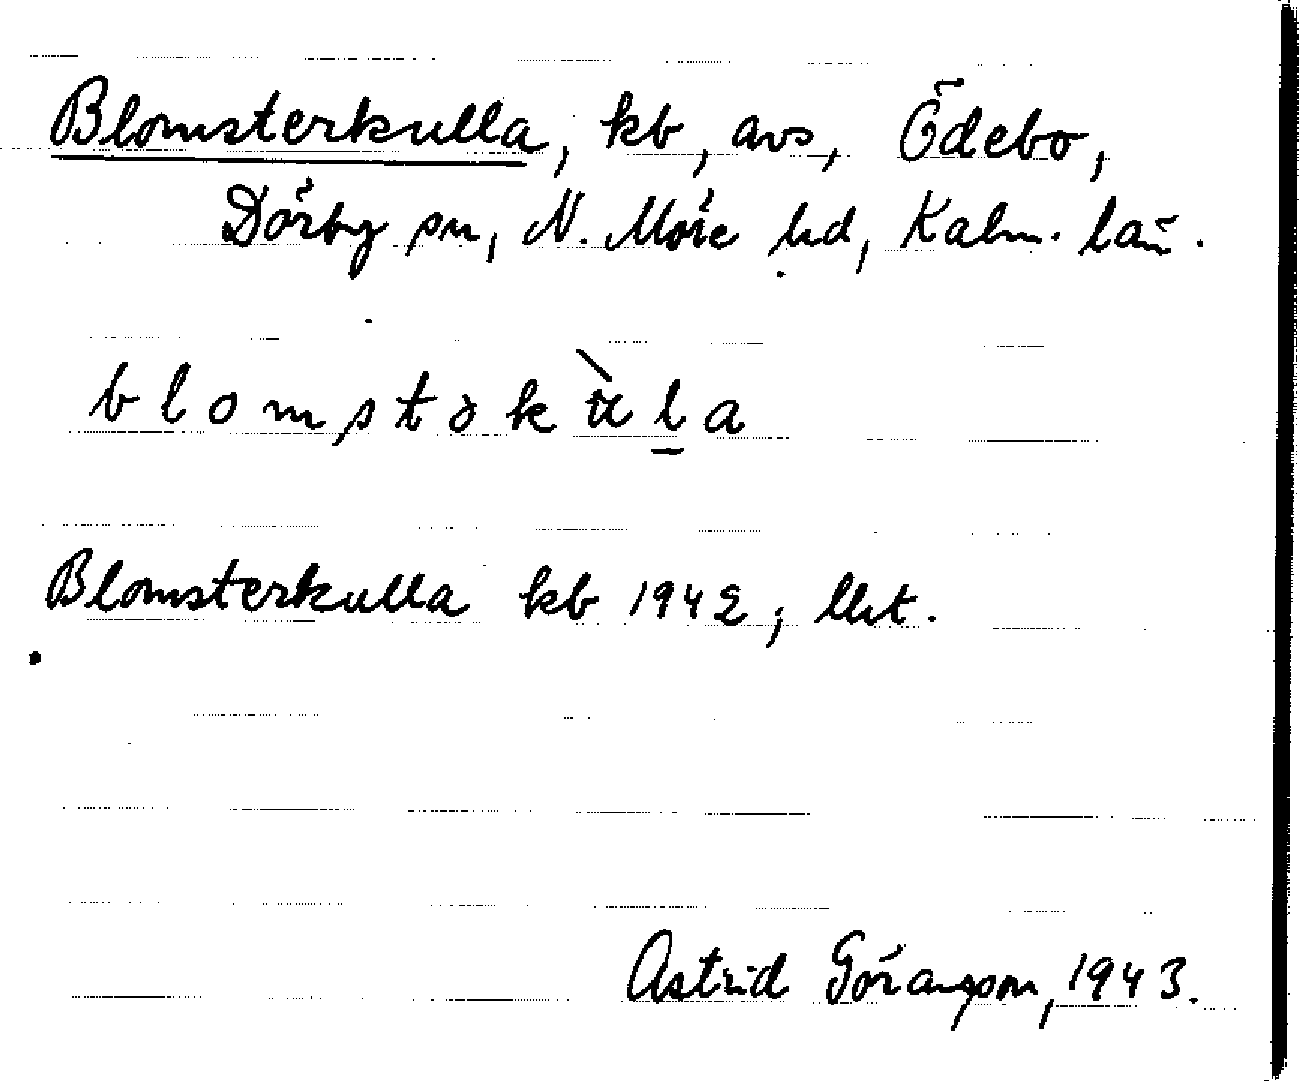 Blomsterkulla, kb, avs, Ödebo,
Dörby sn, N. Möre hd, Kalm. län.
blomstəkùla
Blomsterkulla kb 1942;
Astrid Göransson, 1943.